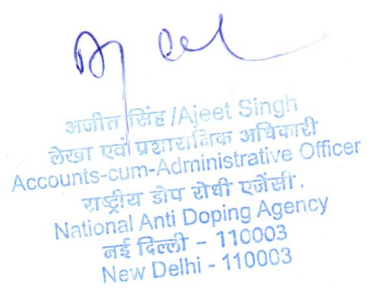 अजीत सिंह /Ajeet Singh
लेखा एवं प्रशासनिक अधिकारी
Accounts-cum-Administrative Officer
राष्ट्रीय डोप रोधी एजेंसी.
National Anti Doping Agency
नई दिल्ली - 110003
New Delhi - 110003